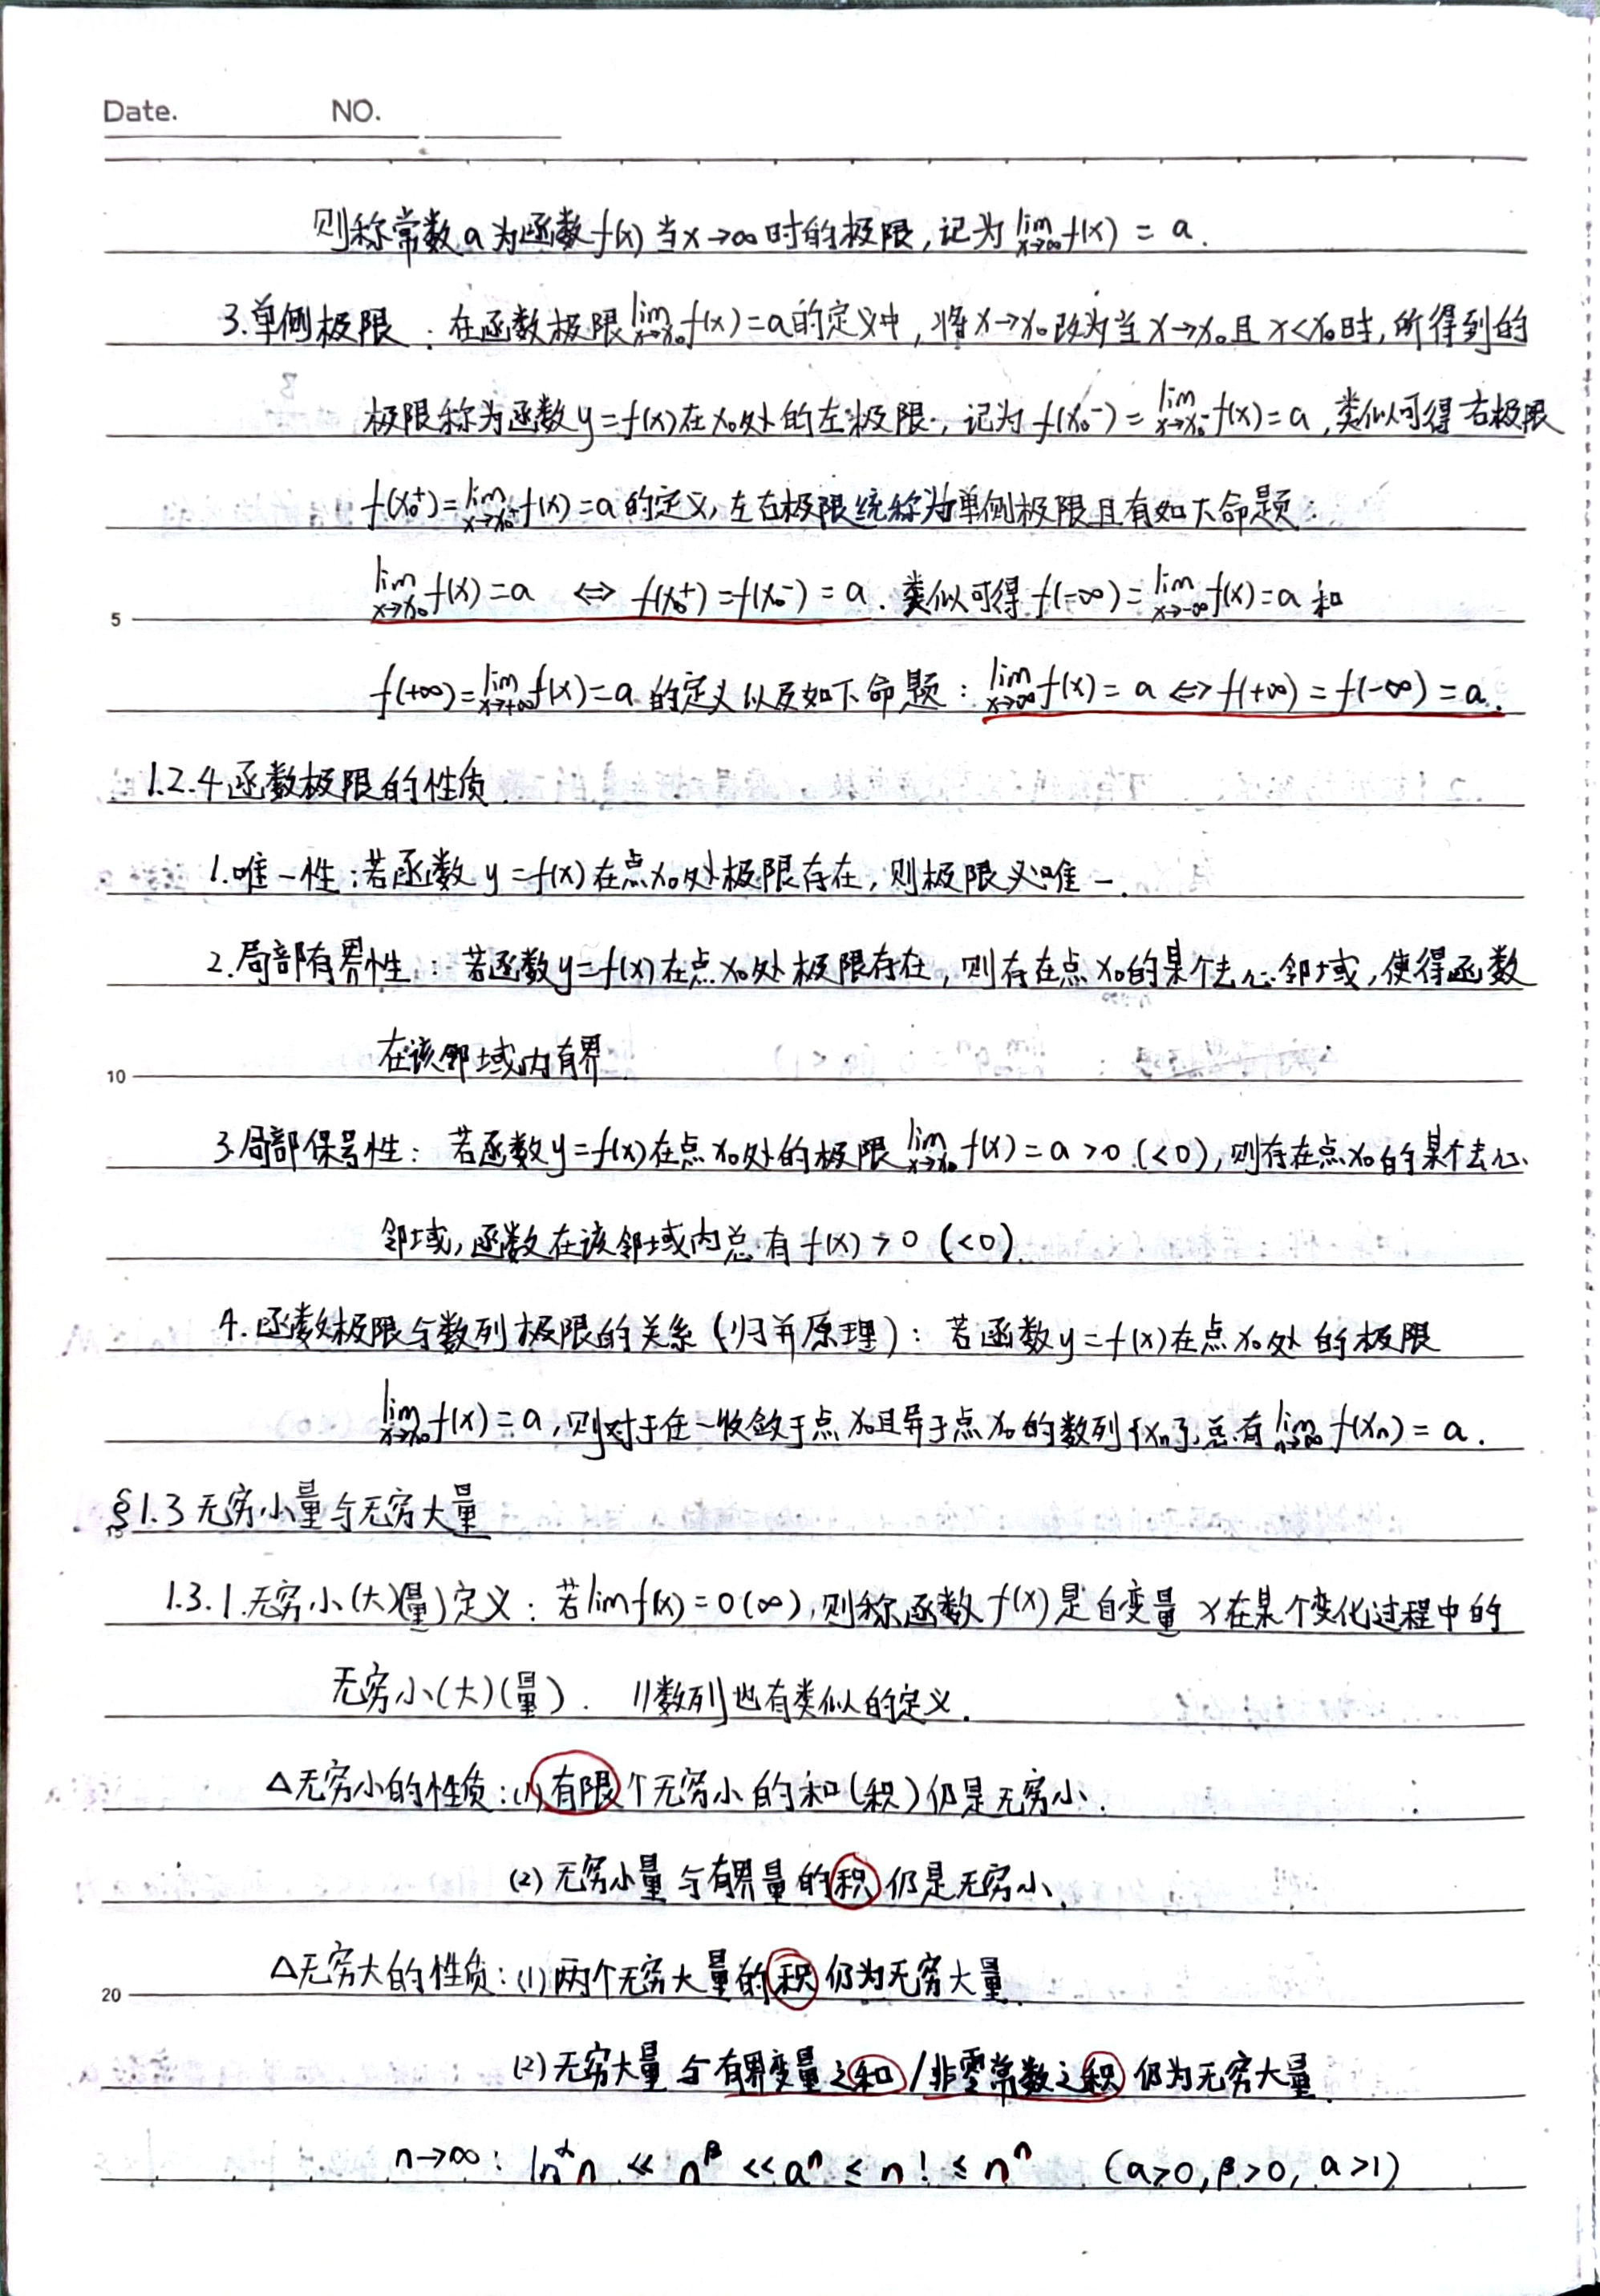 Date. NO.
则称常数a为函数f(x)当x→∞时的极限,记为lim x→∞ f(x) = a.
3.单侧极限:在函数极限lim x→x₀ f(x)=a的定义中,将x→x₀改为当x→x₀且x<x₀时,所得到的
极限称为函数y=f(x)在x₀处的左极限,记为f(x₀⁻)=lim x→x₀⁻ f(x)=a,类似可得右极限
f(x₀⁺)=lim x→x₀⁺ f(x)=a的定义,左右极限统称为单侧极限且有如下命题:
5 lim x→x₀ f(x)=a ⇔ f(x₀⁺)=f(x₀⁻)=a. 类似可得f(-∞)=lim x→-∞ f(x)=a和
f(+∞)=lim x→+∞ f(x)=a的定义以及如下命题:lim x→∞ f(x)=a ⇔ f(+∞)=f(-∞)=a.
1.2.4函数极限的性质
1.唯一性:若函数y=f(x)在点x₀处极限存在,则极限必唯一.
2.局部有界性:若函数y=f(x)在点x₀处极限存在,则存在点x₀的某个去心邻域,使得函数
10 在该邻域内有界.
3.局部保号性:若函数y=f(x)在点x₀处的极限lim x→x₀ f(x)=a>0(<0),则存在点x₀的某个去心
邻域,函数在该邻域内总有f(x)>0(<0).
4.函数极限与数列极限的关系(归并原理):若函数y=f(x)在点x₀处的极限
lim x→x₀ f(x)=a,则对于任一收敛于点x₀且异于点x₀的数列{xₙ},总有lim n→∞ f(xₙ)=a.
§1.3无穷小量与无穷大量
1.3.1.无穷小(大)(量)定义:若limf(x)=0(∞),则称函数f(x)是自变量x在某个变化过程中的
无穷小(大)(量). //数列也有类似的定义.
△无穷小的性质:(1)有限个无穷小的和(积)仍是无穷小.
(2)无穷小量与有界量的积仍是无穷小.
20 △无穷大的性质:(1)两个无穷大量的积仍为无穷大量.
(2)无穷大量与有界变量之和/非零常数之积仍为无穷大量.
n→∞: lnᵅn ≪ nᵝ ≪ aⁿ ≤ n! ≤ nⁿ (α>0,β>0,a>1)